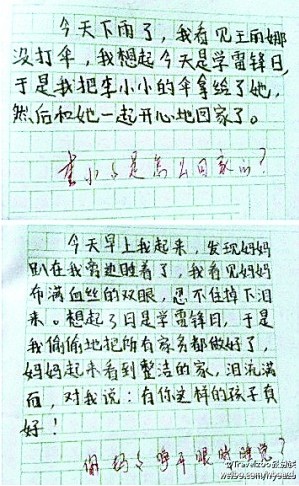 今天下雨了，我看见王丽娜
没打伞，我想起今天是学雷锋日，
于是我把李小小的伞拿给了她，
然后和她一起开心地回家了。
李小小是怎么回家的？
今天早上我起来，发现妈妈
趴在我旁边睡着了，我看见妈妈
布满血丝的双眼，忍不住掉下泪
来。想起3日是学雷锋日，于是
我偷偷地把所有家务都做好了，
妈妈起来看到整洁的家，泪流满
面，对我说：有你这样的孩子真
好！
你妈妈睁开眼睛睡觉？